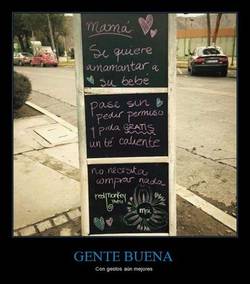 Mamá
Si quiere
amamantar a
su bebé
pase sin
pedir permiso
y pida GRATIS
un té caliente
no necesita
comprar nada
red monkey
GENTE BUENA
Con gestos aún mejores